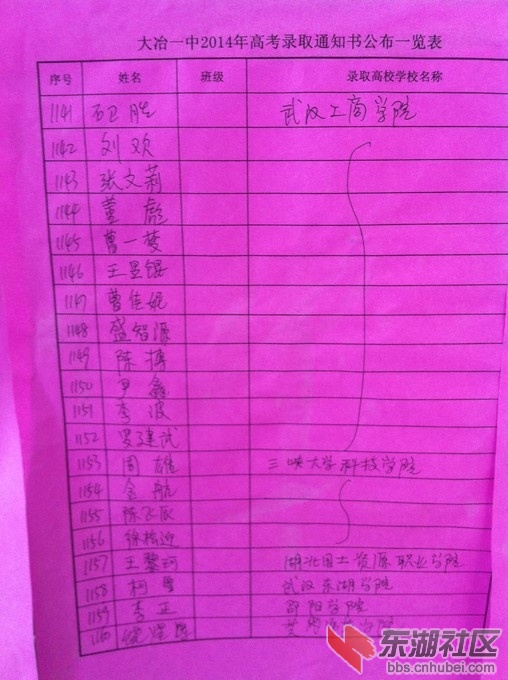 大冶一中2014年高考录取通知书公布一览表
序号 姓名 班级 录取高校学校名称
1141 石卫胜 武汉工商学院
1142 刘欢
1143 张文莉
1144 董彪
1145 曹一梦
1146 王显锟
1147 曹佳妮
1148 盛智源
1149 陈博
1150 尹鑫
1151 李波
1152 罗建武
1153 周雄 三峡大学科技学院
1154 金航
1155 陈飞辰
1156 徐
1157 王 湖北国土资源职业学院
1158 柯 武汉东湖学院
1159 李正 邵阳学院
1160
东湖社区
bbs.cnhubei.com